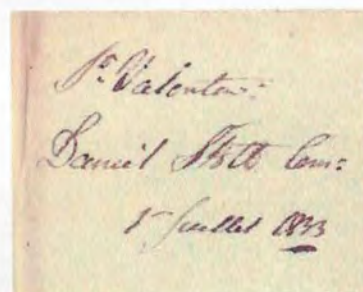 St. Valentin:
Daniel Stott Com:
1er Juillet 1833